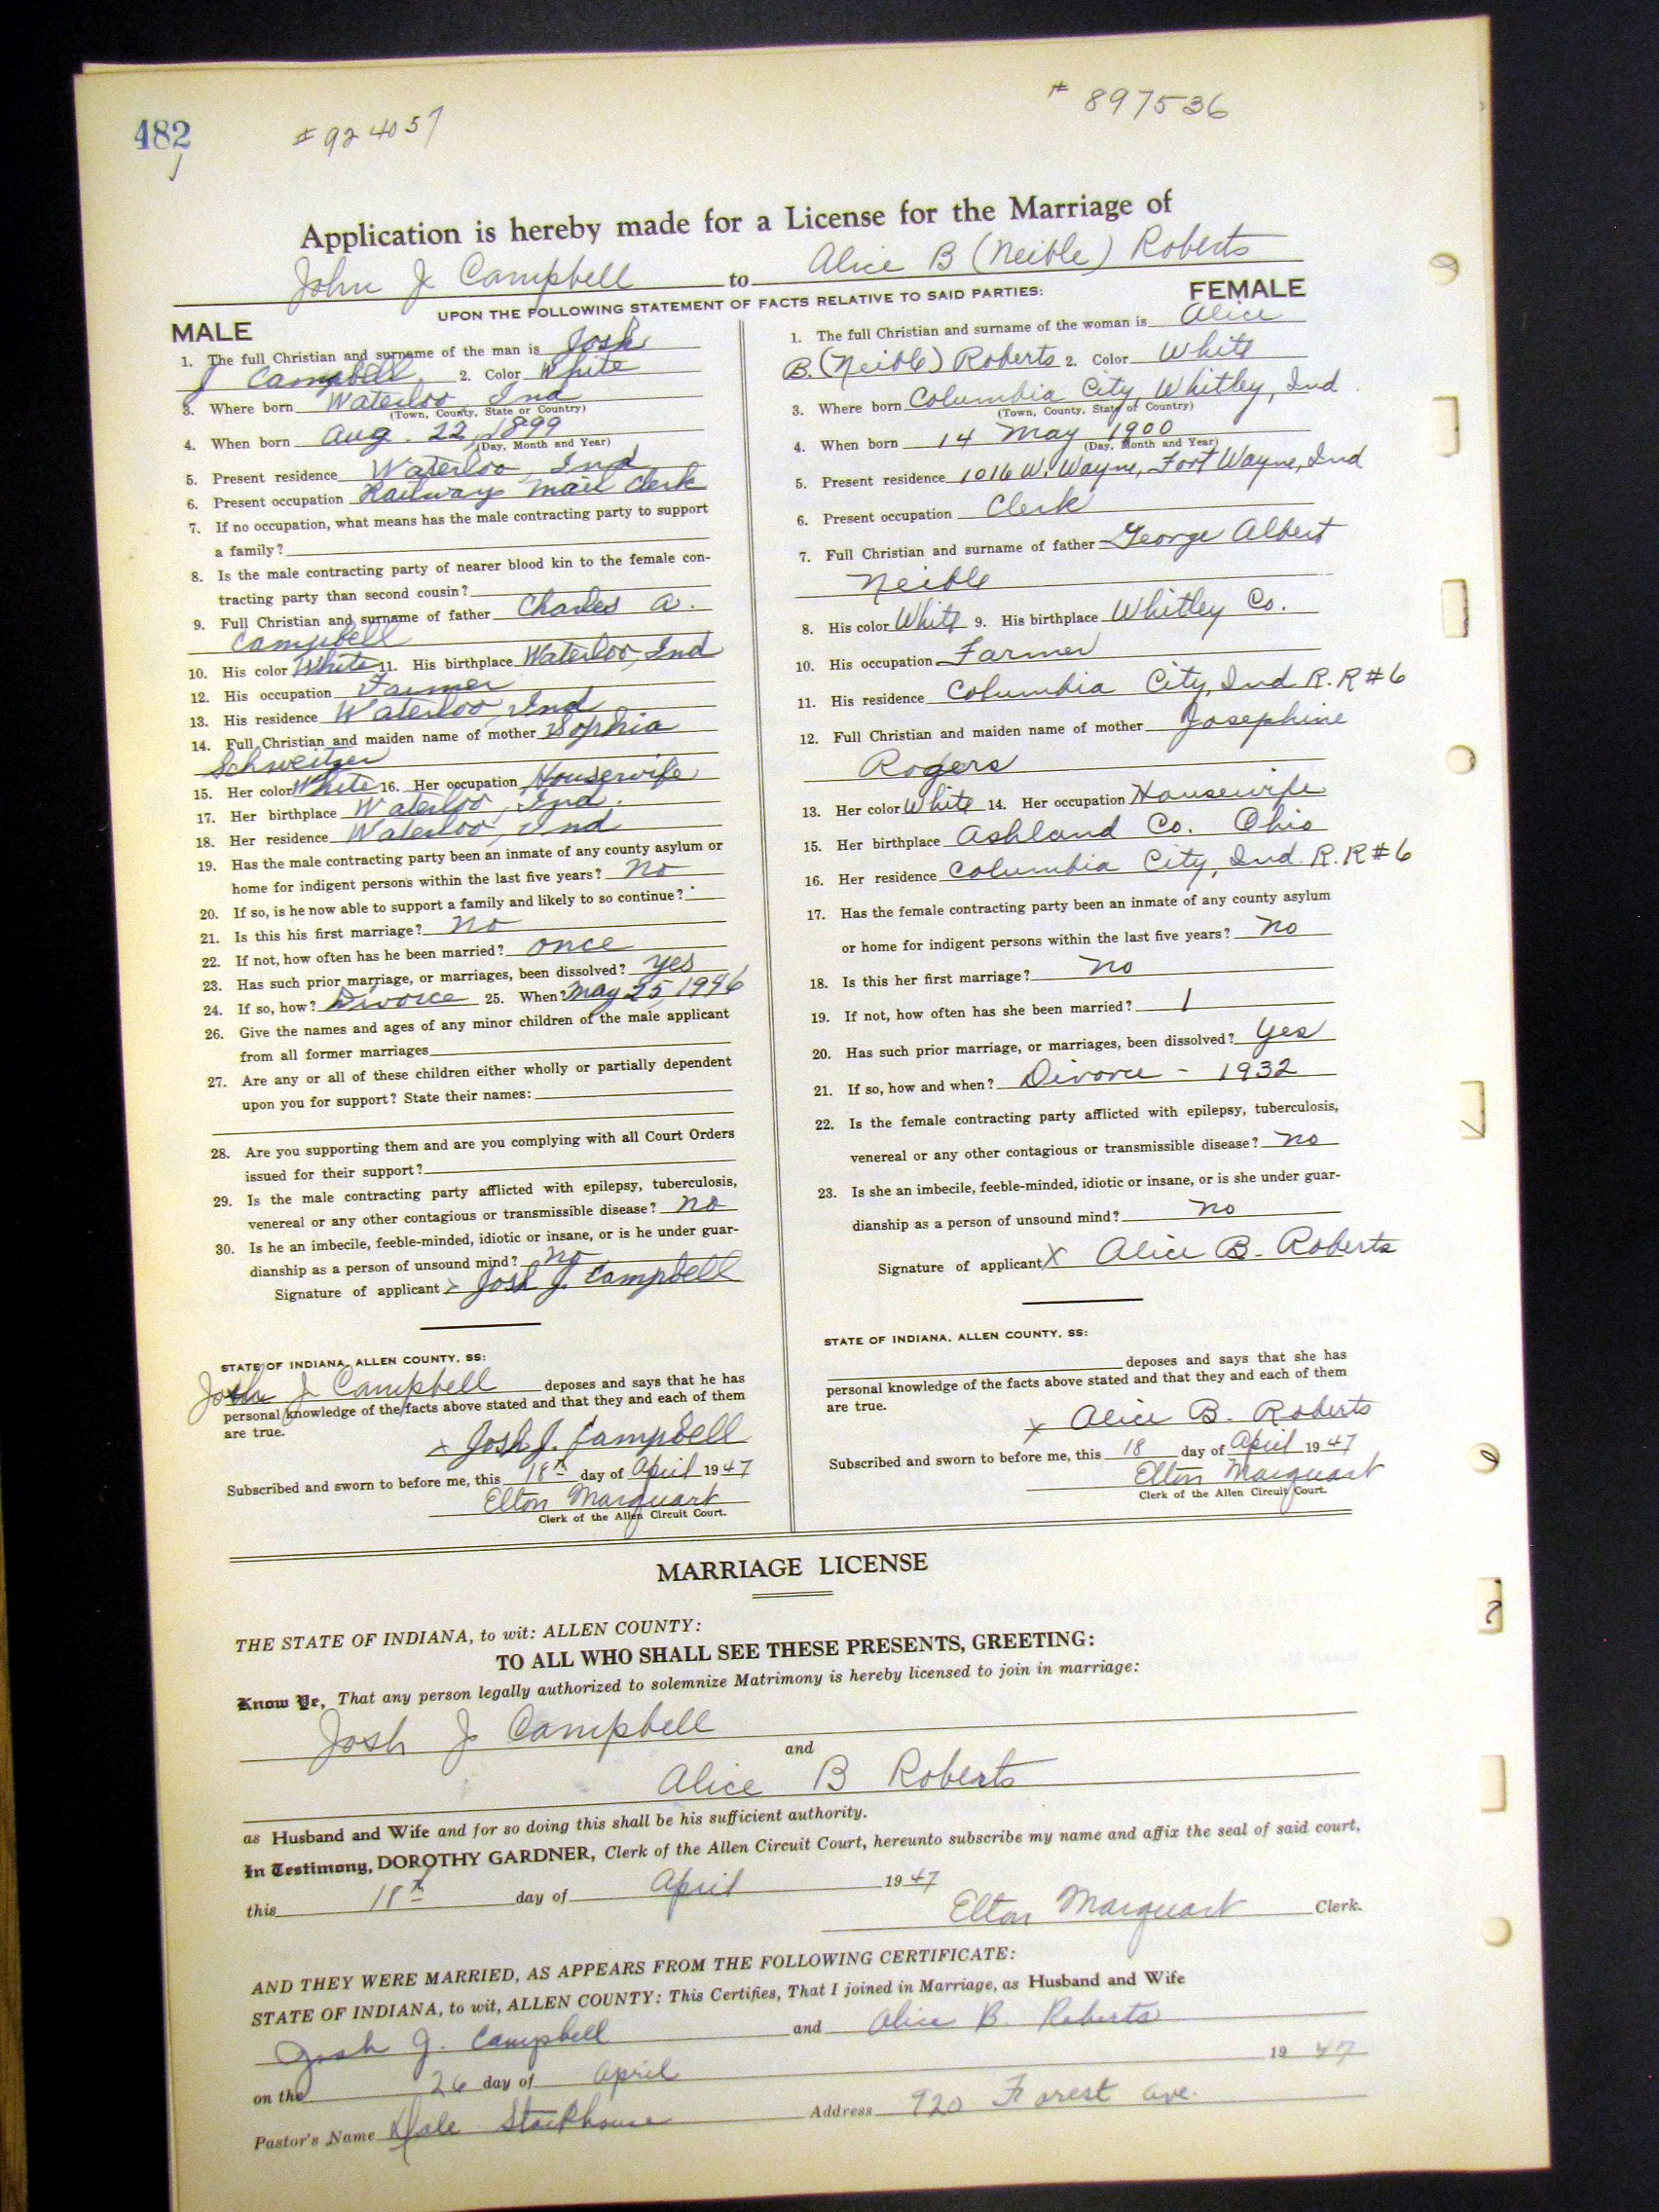 482
# 924057
# 897536
Application is hereby made for a License for the Marriage of
John J Campbell to Alice B (Neible) Roberts
UPON THE FOLLOWING STATEMENT OF FACTS RELATIVE TO SAID PARTIES:
MALE
1. The full Christian and surname of the man is Josh
J Campbell 2. Color White
3. Where born Waterloo, Ind
(Town, County, State or Country)
4. When born Aug. 22, 1899
(Day, Month and Year)
5. Present residence Waterloo, Ind
6. Present occupation Railway Mail Clerk
7. If no occupation, what means has the male contracting party to support
a family?
8. Is the male contracting party of nearer blood kin to the female con-
tracting party than second cousin?
9. Full Christian and surname of father Charles A.
Campbell
10. His color White 11. His birthplace Waterloo, Ind
12. His occupation Farmer
13. His residence Waterloo, Ind
14. Full Christian and maiden name of mother Sophia
Schweitzer
15. Her color White 16. Her occupation Housewife
17. Her birthplace Waterloo, Ind.
18. Her residence Waterloo, Ind
19. Has the male contracting party been an inmate of any county asylum or
home for indigent persons within the last five years? No
20. If so, is he now able to support a family and likely to so continue?
21. Is this his first marriage? No
22. If not, how often has he been married? once
23. Has such prior marriage, or marriages, been dissolved? yes
24. If so, how? Divorce 25. When? May 25, 1946
26. Give the names and ages of any minor children of the male applicant
from all former marriages
27. Are any or all of these children either wholly or partially dependent
upon you for support? State their names:
28. Are you supporting them and are you complying with all Court Orders
issued for their support?
29. Is the male contracting party afflicted with epilepsy, tuberculosis,
venereal or any other contagious or transmissible disease? no
30. Is he an imbecile, feeble-minded, idiotic or insane, or is he under guar-
dianship as a person of unsound mind? no
Signature of applicant x Josh J. Campbell
STATE OF INDIANA, ALLEN COUNTY, SS:
Josh J Campbell deposes and says that he has
personal knowledge of the facts above stated and that they and each of them
are true.
x Josh J. Campbell
Subscribed and sworn to before me, this 18th day of April 1947
Elton Marquart
Clerk of the Allen Circuit Court.
FEMALE
1. The full Christian and surname of the woman is Alice
B. (Neible) Roberts 2. Color White
3. Where born Columbia City, Whitley, Ind
(Town, County, State or Country)
4. When born 14 May 1900
(Day, Month and Year)
5. Present residence 1016 W. Wayne, Fort Wayne, Ind
6. Present occupation Clerk
7. Full Christian and surname of father George Albert
Neible
8. His color White 9. His birthplace Whitley Co.
10. His occupation Farmer
11. His residence Columbia City, Ind R.R #6
12. Full Christian and maiden name of mother Josephine
Rogers
13. Her color White 14. Her occupation Housewife
15. Her birthplace Ashland Co. Ohio
16. Her residence Columbia City, Ind. R.R #6
17. Has the female contracting party been an inmate of any county asylum
or home for indigent persons within the last five years? No
18. Is this her first marriage? No
19. If not, how often has she been married? 1
20. Has such prior marriage, or marriages, been dissolved? Yes
21. If so, how and when? Divorce - 1932
22. Is the female contracting party afflicted with epilepsy, tuberculosis,
venereal or any other contagious or transmissible disease? No
23. Is she an imbecile, feeble-minded, idiotic or insane, or is she under guar-
dianship as a person of unsound mind? No
Signature of applicant X Alice B. Roberts
STATE OF INDIANA, ALLEN COUNTY, SS:
deposes and says that she has
personal knowledge of the facts above stated and that they and each of them
are true.
x Alice B. Roberts
Subscribed and sworn to before me, this 18 day of April 1947
Elton Marquart
Clerk of the Allen Circuit Court.
MARRIAGE LICENSE
THE STATE OF INDIANA, to wit: ALLEN COUNTY:
TO ALL WHO SHALL SEE THESE PRESENTS, GREETING:
Know Ye, That any person legally authorized to solemnize Matrimony is hereby licensed to join in marriage:
Josh J Campbell
and
Alice B Roberts
as Husband and Wife and for so doing this shall be his sufficient authority.
In Testimony, DOROTHY GARDNER, Clerk of the Allen Circuit Court, hereunto subscribe my name and affix the seal of said court,
this 18th day of April 1947
Elton Marquart Clerk.
AND THEY WERE MARRIED, AS APPEARS FROM THE FOLLOWING CERTIFICATE:
STATE OF INDIANA, to wit, ALLEN COUNTY: This Certifies, That I joined in Marriage, as Husband and Wife
Josh J. Campbell and Alice B. Roberts
on the 26 day of April 1947
Pastor's Name Dale Stackhouse Address 920 Forest Ave.